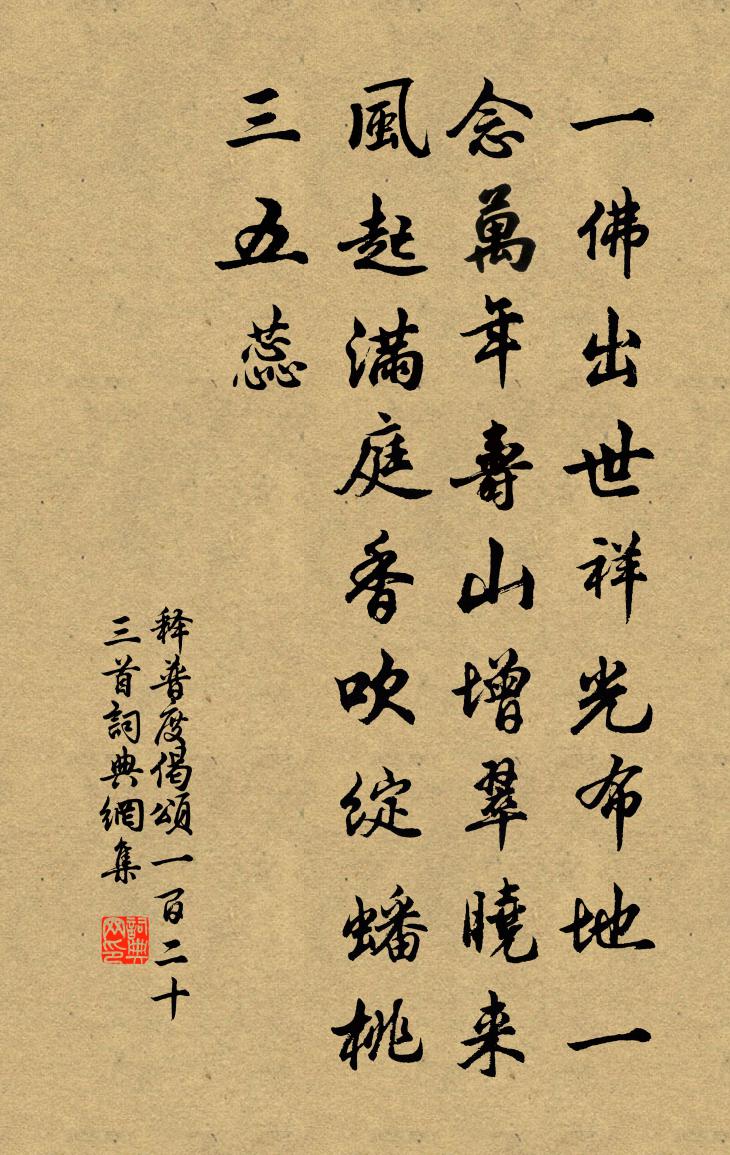 一佛出世祥光布地一
念萬年壽山增翠曉来
風起滿庭香吹綻蟠桃
三五蕊
释普度偈頌一百二十
三首詞典網集
詞典
网印